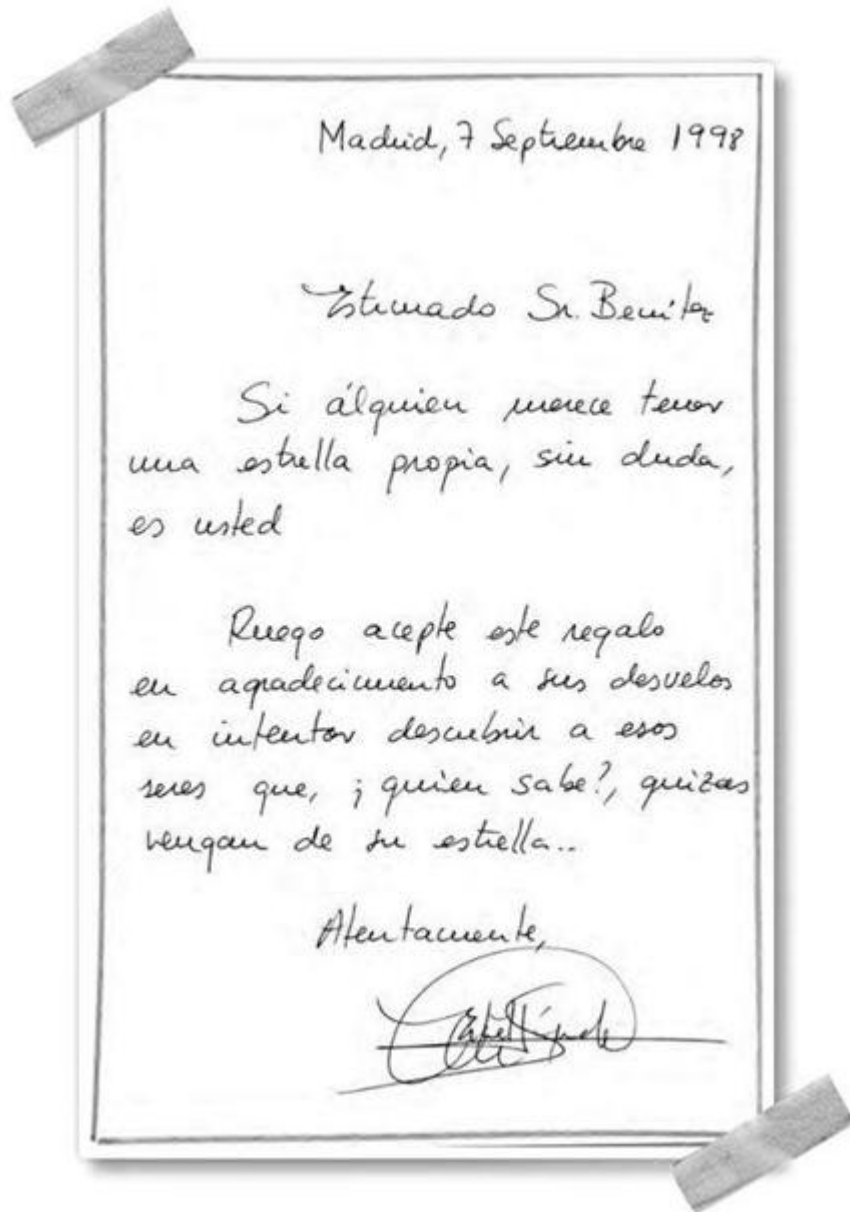 Madrid, 7 Septiembre 1998
Estimado Sr. Benítez
Si álguien merece tener
una estrella propia, sin duda,
es usted
Ruego acepte este regalo
en agradecimiento a sus desvelos
en intentar descubrir a esos
seres que, ¿quien sabe?, quizas
vengan de su estrella..
Atentamente,